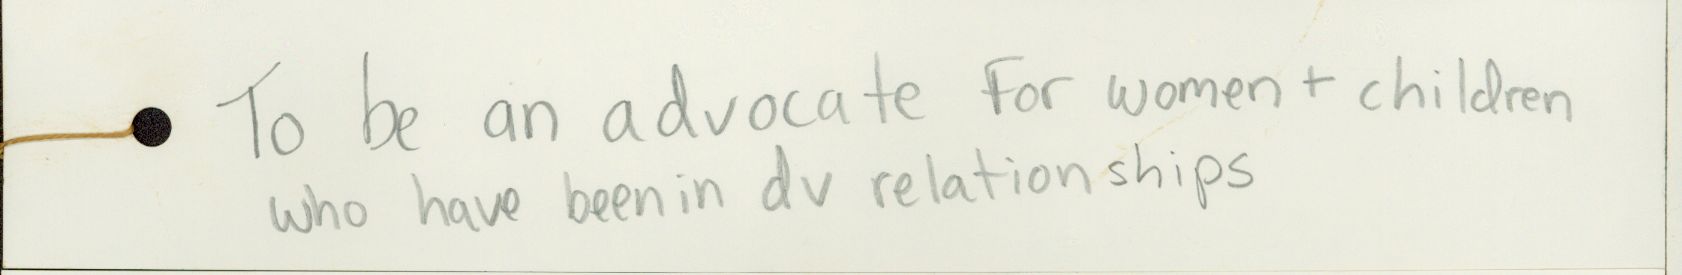 To be an advocate For women + children
who have been in dv relationships